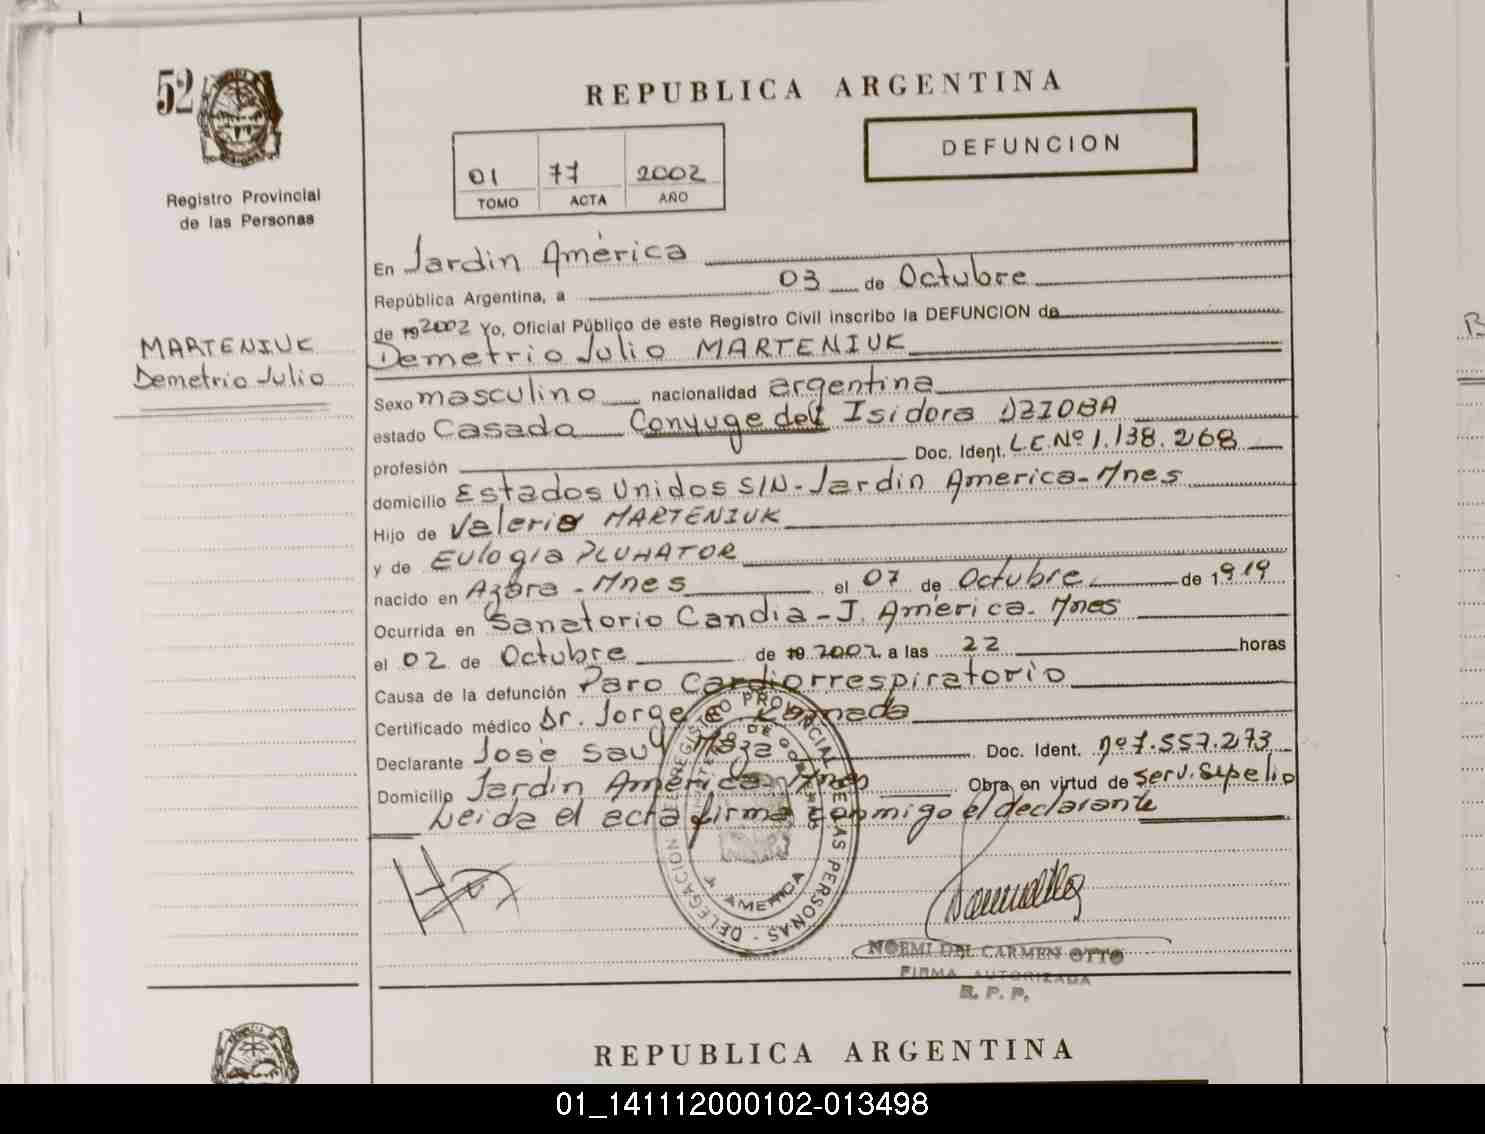 52
Registro Provincial
de las Personas
MARTENIUK
Demetrio Julio
REPUBLICA ARGENTINA
DEFUNCION
01 77 2002
TOMO ACTA AÑO
En Jardin América
República Argentina, a 03 de Octubre
de 19 2002 Yo, Oficial Público de este Registro Civil inscribo la DEFUNCION de
Demetrio Julio MARTENIUK
Sexo masculino nacionalidad argentina
estado Casado Conyuge del Isidora
profesión Doc. Ident. L.E. Nº 1.138.268
domicilio Estados Unidos S/N - Jardin America - Mnes
Hijo de Valerio MARTENIUK
y de Eulogia PLUHATOR
nacido en Azara - Mnes el 07 de Octubre de 1919
Ocurrida en Sanatorio Candia - J. América - Mnes
el 02 de Octubre de 19 2002 a las 22 horas
Causa de la defunción Paro Cardiorrespiratorio
Certificado médico Dr. Jorge
Declarante José Saul Doc. Ident. nº 7.557.273
Domicilio Jardin América - Mnes Obra en virtud de Serv. Sepelio
Leida el acta firma conmigo el declarante
DELEGACION REGISTRO PROVINCIAL DE LAS PERSONAS
J. AMERICA
NOEMI DEL CARMEN OTTO
FIRMA AUTORIZADA
R. P. P.
REPUBLICA ARGENTINA
01_141112000102-013498